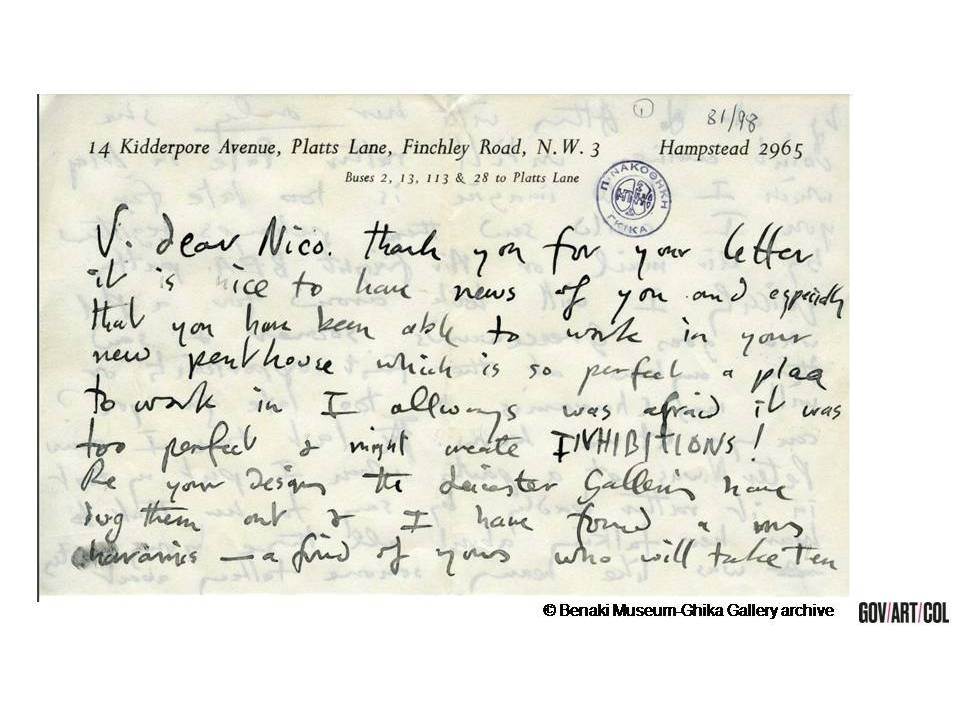 ①
81/98
14 Kidderpore Avenue, Platts Lane, Finchley Road, N.W. 3 Hampstead 2965
Buses 2, 13, 113 & 28 to Platts Lane
ΠΙΝΑΚΟΘΗΚΗ ΓΚΙΚΑ
V. dear Nico. thank you for your letter
it is nice to have news of you and especially
that you have been able to work in your
new penthouse which is so perfect a place
to work in I allways was afraid it was
too perfect & might create INHIBITIONS!
Re your designs the Leicester Galleries have
dug them out & I have found a
— a friend of yours who will take ten
© Benaki Museum-Ghika Gallery archive
GOV/ART/COL